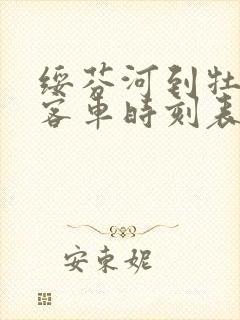 绥芬河到牡
客车时刻表
安东妮